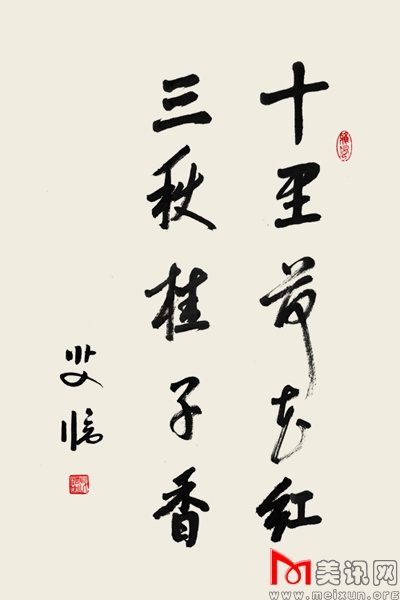 十里荷花红
三秋桂子香
美讯网
www.meixun.org